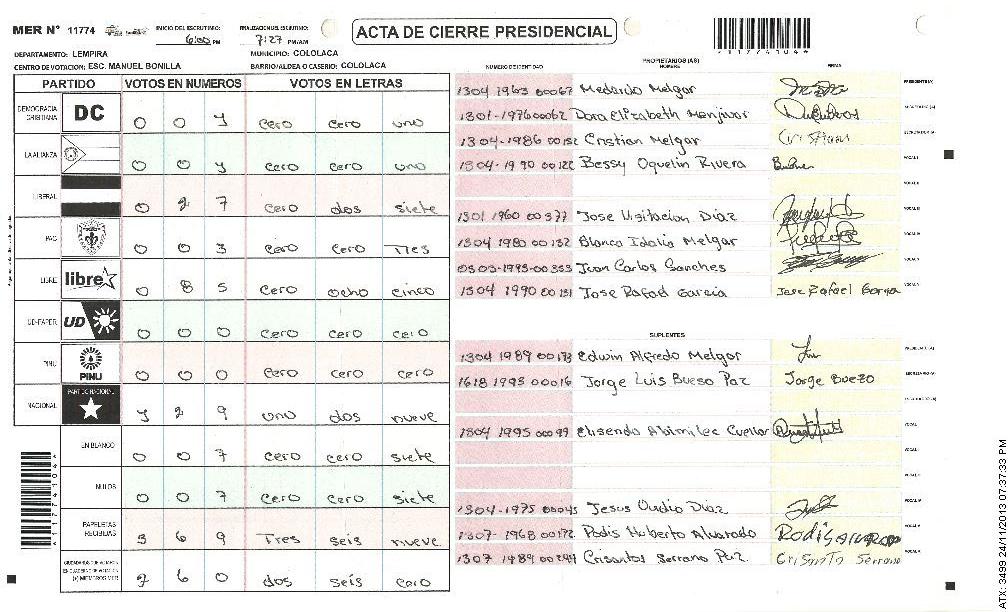 MER Nº 11774
INICIO DEL ESCRUTINIO: 6:00 PM
FINALIZACION ESCRUTINIO: 7:27 PM/AM
ACTA DE CIERRE PRESIDENCIAL
11774104
DEPARTAMENTO: LEMPIRA
MUNICIPIO: COLOLACA
CENTRO DE VOTACION: ESC. MANUEL BONILLA
BARRIO/ALDEA O CASERIO: COLOLACA
PARTIDO VOTOS EN NUMEROS VOTOS EN LETRAS
DEMOCRACIA CRISTIANA DC 0 0 1 cero cero uno
LA ALIANZA 0 0 1 cero cero uno
LIBERAL 0 2 7 cero dos siete
PAC 0 0 3 cero cero Tres
LIBRE libre 0 8 5 cero ocho cinco
UD-FAPER UD 0 0 0 cero cero cero
PINU PINU 0 0 0 cero cero cero
NACIONAL PARTIDO NACIONAL 1 2 9 uno dos nueve
EN BLANCO 0 0 7 cero cero siete
NULOS 0 0 7 cero cero siete
PAPELETAS RECIBIDAS 3 6 9 Tres seis nueve
CIUDADANOS DE VOTARON EN CUADERNO DE VOTACION (+) MIEMBROS MER 2 6 0 dos seis cero
NUMERO DE IDENTIDAD PROPIETARIOS (AS) NOMBRE FIRMA
1304 1963 00067 Medardo Melgar PRESIDENTE (A)
1301-1976 00062 Dora Elizabeth Menjivar SECRETARIO (A)
1304-1986 00152 Cristian Melgar Cristian ESCRUTADOR (A)
1304-1990 00122 Bessy Oquelin Rivera VOCAL I
VOCAL II
1301 1960 00377 Jose Visitacion Diaz VOCAL III
1304 1980 00132 Blanca Idalia Melgar VOCAL IV
0503-1995-00353 Juan Carlos Sanches VOCAL V
1304 1990 00131 Jose Rafael Garcia Jose Rafael Garcia VOCAL VI
SUPLENTES
1304 1989 00173 Edwin Alfredo Melgar PRESIDENTE (A)
1618 1993 00016 Jorge Luis Bueso Paz Jorge Buezo SECRETARIO (A)
ESCRUTADOR (A)
1304 1995 00099 Elisendo Abimilec Cuellar VOCAL I
VOCAL II
VOCAL III
1304-1975 00045 Jesus Ovidio Diaz VOCAL IV
1307-1968 00172 Rodis Huberto Alvarado Rodis Alvarado VOCAL V
1307 1989 00244 Crisantos Serrano Paz Crisanto Serrano VOCAL VI
ATX: 3499 24/11/2013 07:37:33 PM